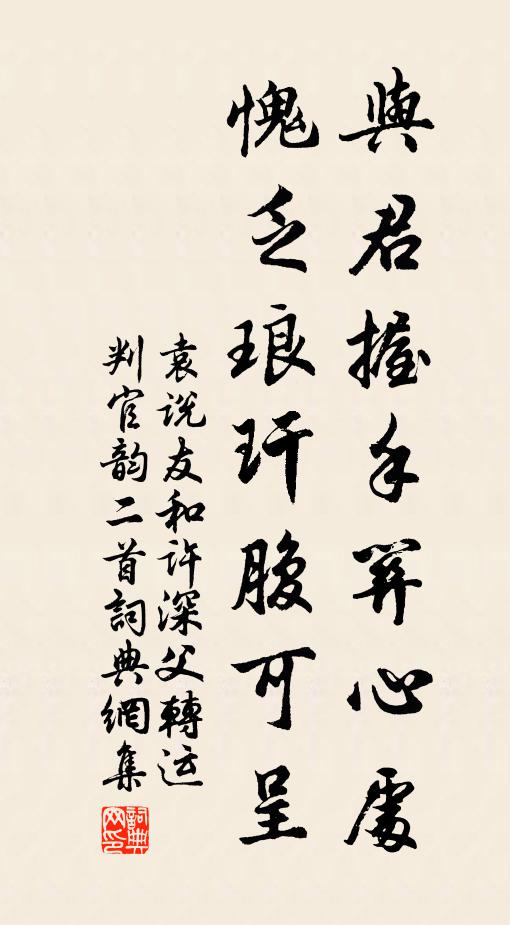 與君握手開心處
愧乏琅玕腹可呈
袁说友和许深父轉运
判官韵二首詞典網集
詞典
网印